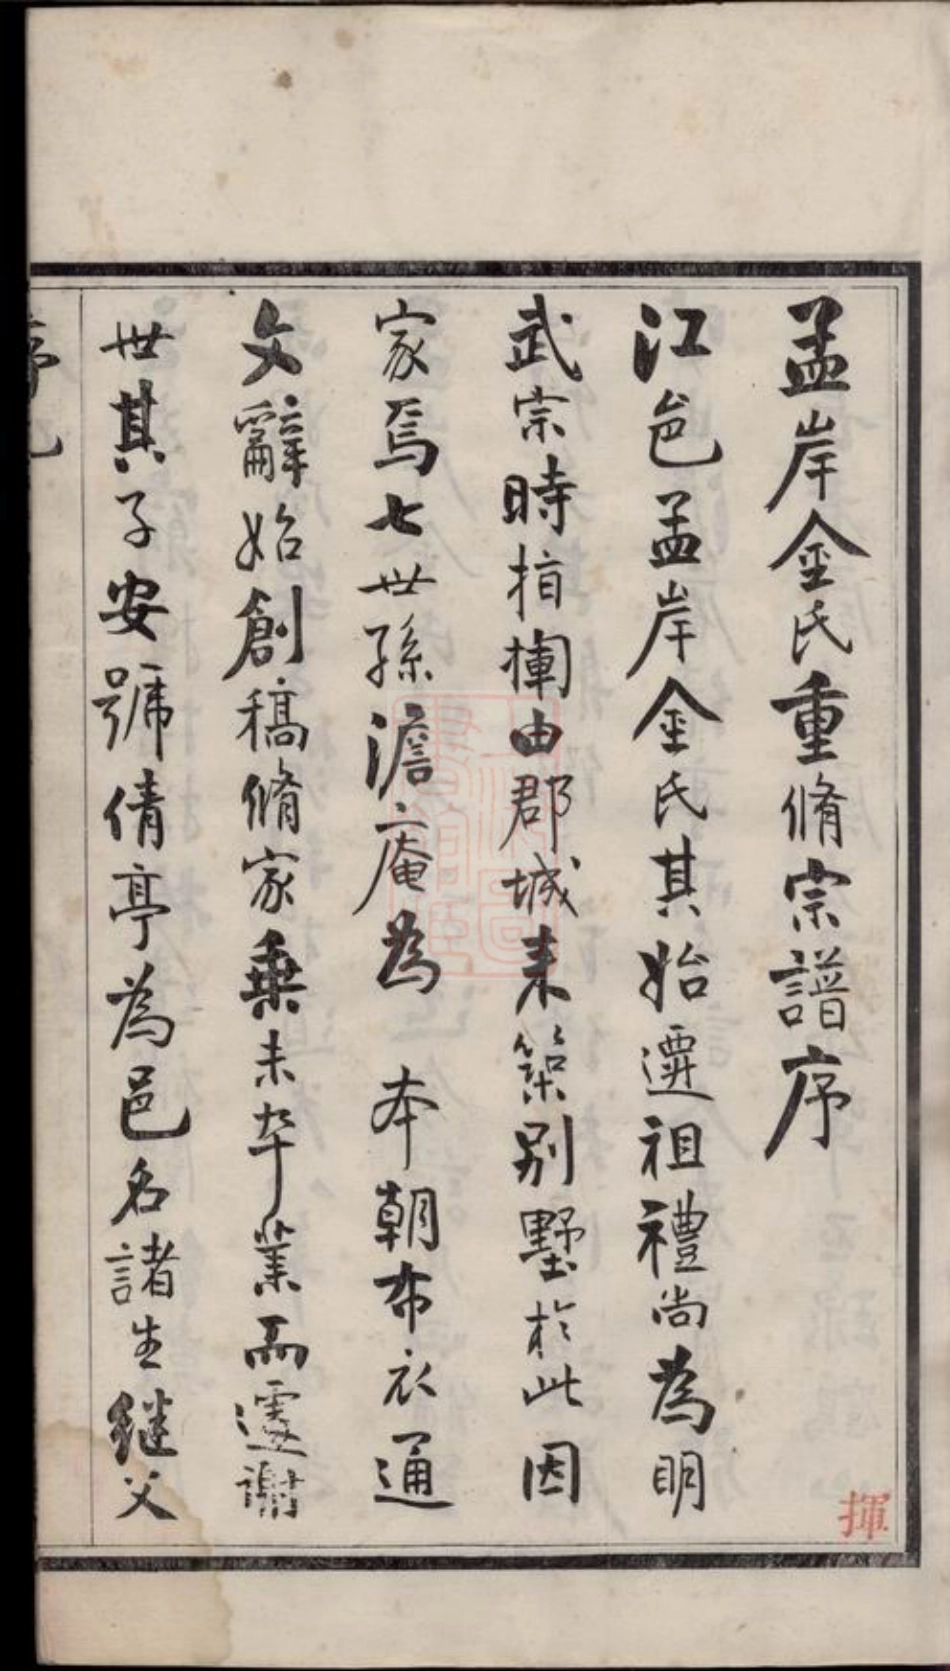 孟岸金氏重脩宗譜序
江邑孟岸金氏其始遷祖禮尚為明
武宗時指揮由郡城来築別墅於此因
家焉七世孫澹庵為 本朝布衣通
文辭始創稿脩家乗未卒業而遽謝
世其子安號倩亭為邑名諸生継父
揮